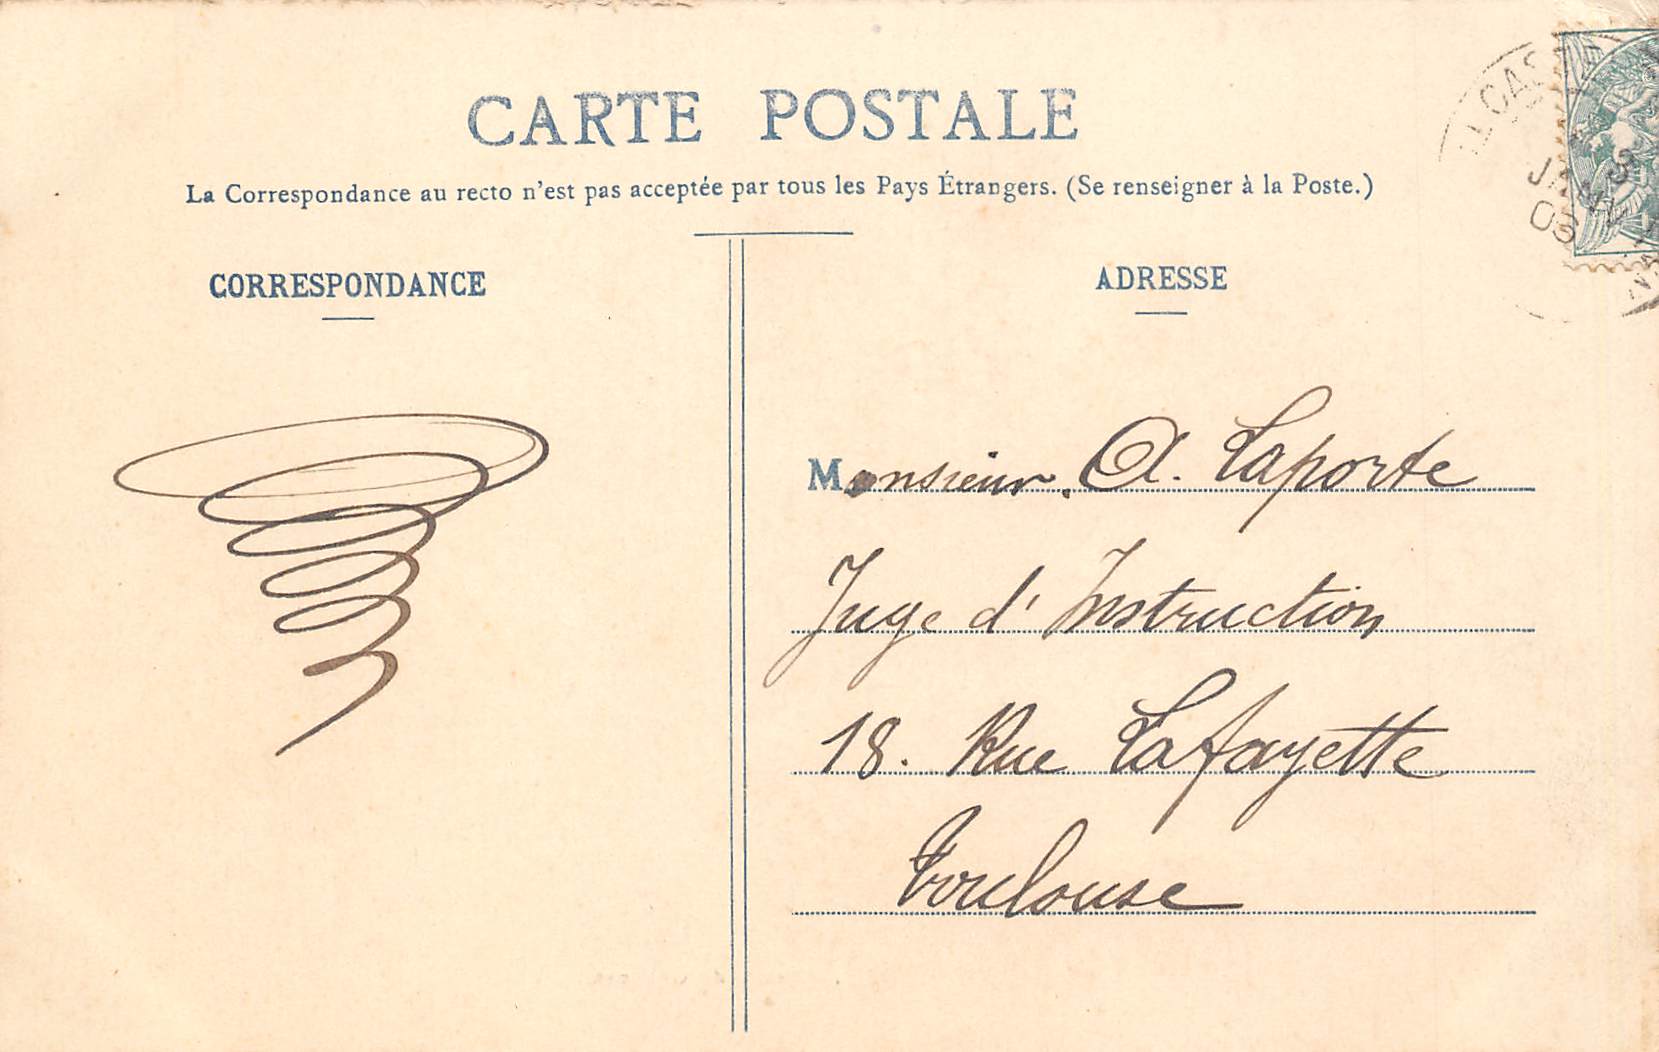 CARTE POSTALE
La Correspondance au recto n'est pas acceptée par tous les Pays Étrangers. (Se renseigner à la Poste.)
CORRESPONDANCE
ADRESSE
Monsieur. A. Laporte
Juge d'Instruction
18. Rue Lafayette
Toulouse